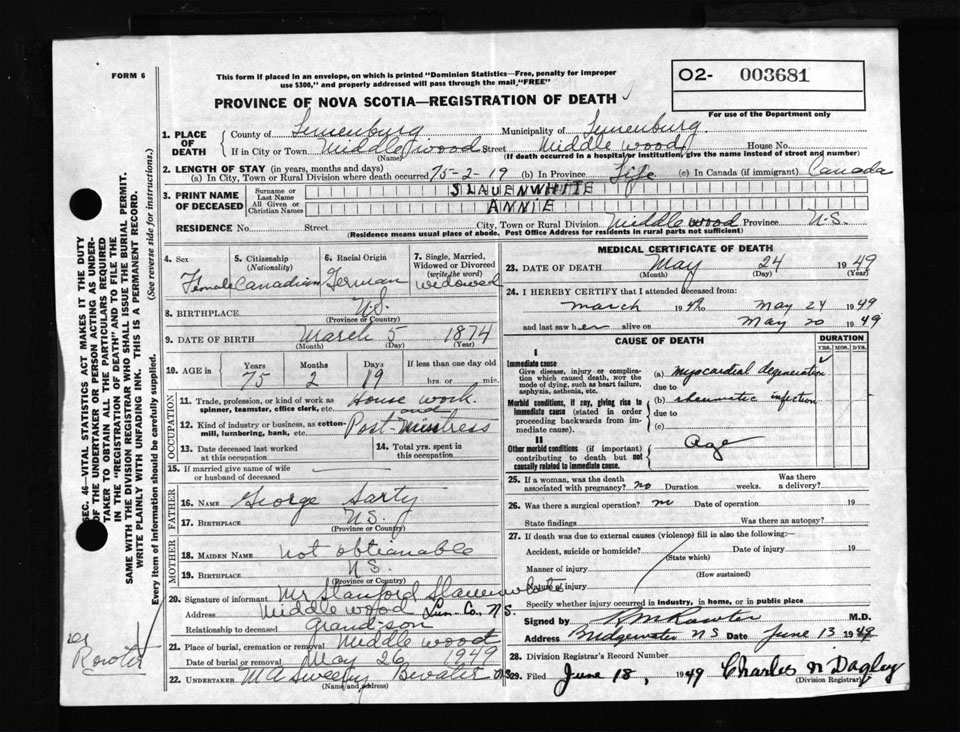 FORM 6
This form if placed in an envelope, on which is printed "Dominion Statistics—Free, penalty for improper
use $300," and properly addressed will pass through the mail, "FREE"
O2- 003681
For use of the Department only
PROVINCE OF NOVA SCOTIA—REGISTRATION OF DEATH
1. PLACE OF DEATH
County of Lunenburg Municipality of Lunenburg
If in City or Town Middlewood Street Middlewood House No.
(Name) (If death occurred in a hospital or institution, give the name instead of street and number)
2. LENGTH OF STAY (in years, months and days)
(a) In City, Town or Rural Division where death occurred 75-2-19 (b) In Province Life (c) In Canada (if immigrant) Canada
3. PRINT NAME OF DECEASED
Surname or Last Name SLAUENWHITE
All Given or Christian Names ANNIE
RESIDENCE No. Street City, Town or Rural Division Middlewood Province N.S.
(Residence means usual place of abode. Post Office Address for residents in rural parts not sufficient)
4. Sex Female
5. Citizenship (Nationality) Canadian
6. Racial Origin German
7. Single, Married, Widowed or Divorced (write the word) widowed
8. BIRTHPLACE N.S.
(Province or Country)
9. DATE OF BIRTH March 5 1874
(Month) (Day) (Year)
10. AGE in Years 75 Months 2 Days 19 If less than one day old
hrs. or min.
OCCUPATION
11. Trade, profession, or kind of work as spinner, teamster, office clerk, etc. House work
and
12. Kind of industry or business, as cotton-mill, lumbering, bank, etc. Post-Mistress
13. Date deceased last worked at this occupation
14. Total yrs. spent in this occupation
15. If married give name of wife or husband of deceased
FATHER
16. NAME George Sarty
17. BIRTHPLACE N.S.
(Province or Country)
MOTHER
18. MAIDEN NAME Not obtianable
19. BIRTHPLACE N.S.
(Province or Country)
20. Signature of informant Mr Stanford Slauenwhite
Address Middlewood Lun. Co., N.S.
Relationship to deceased Grand-son
21. Place of burial, cremation or removal Middlewood
Date of burial or removal May 26 1949
22. UNDERTAKER M A Sweeny B.water N.S.
(Name and address)
MEDICAL CERTIFICATE OF DEATH
23. DATE OF DEATH May 24 1949
(Month) (Day) (Year)
24. I HEREBY CERTIFY that I attended deceased from:
March 19 to May 24 1949
and last saw her alive on May 20 1949
CAUSE OF DEATH
DURATION
YRS. MOS. DYS.
I
Immediate cause
Give disease, injury or complication which caused death, not the mode of dying, such as heart failure, asphyxia, asthenia, etc.
(a) myocardial degeneration
due to
Morbid conditions, if any, giving rise to immediate cause (stated in order proceeding backwards from immediate cause).
(b) rheumatic infection
due to
(c)
II
Other morbid conditions (if important) contributing to death but not causally related to immediate cause.
Age
25. If a woman, was the death associated with pregnancy? no Duration weeks. Was there a delivery?
26. Was there a surgical operation? no Date of operation 19
State findings Was there an autopsy?
27. If death was due to external causes (violence) fill in also the following:
Accident, suicide or homicide? Date of injury 19
(State which)
Manner of injury
(How sustained)
Nature of injury
Specify whether injury occurred in industry, in home, or in public place
Signed by M.D.
Address Bridgewater NS Date June 13 1949
28. Division Registrar's Record Number
29. Filed June 18, 1949 Charles N Dagley
(Division Registrar)
SEC. 46—VITAL STATISTICS ACT MAKES IT THE DUTY
OF THE UNDERTAKER OR PERSON ACTING AS UNDER-
TAKER TO OBTAIN ALL THE PARTICULARS REQUIRED
IN THE "REGISTRATION OF DEATH" AND TO FILE THE
SAME WITH THE DIVISION REGISTRAR WHO SHALL ISSUE THE BURIAL PERMIT.
WRITE PLAINLY WITH UNFADING INK. THIS IS A PERMANENT RECORD.
Every item of information should be carefully supplied. (See reverse side for instructions.)